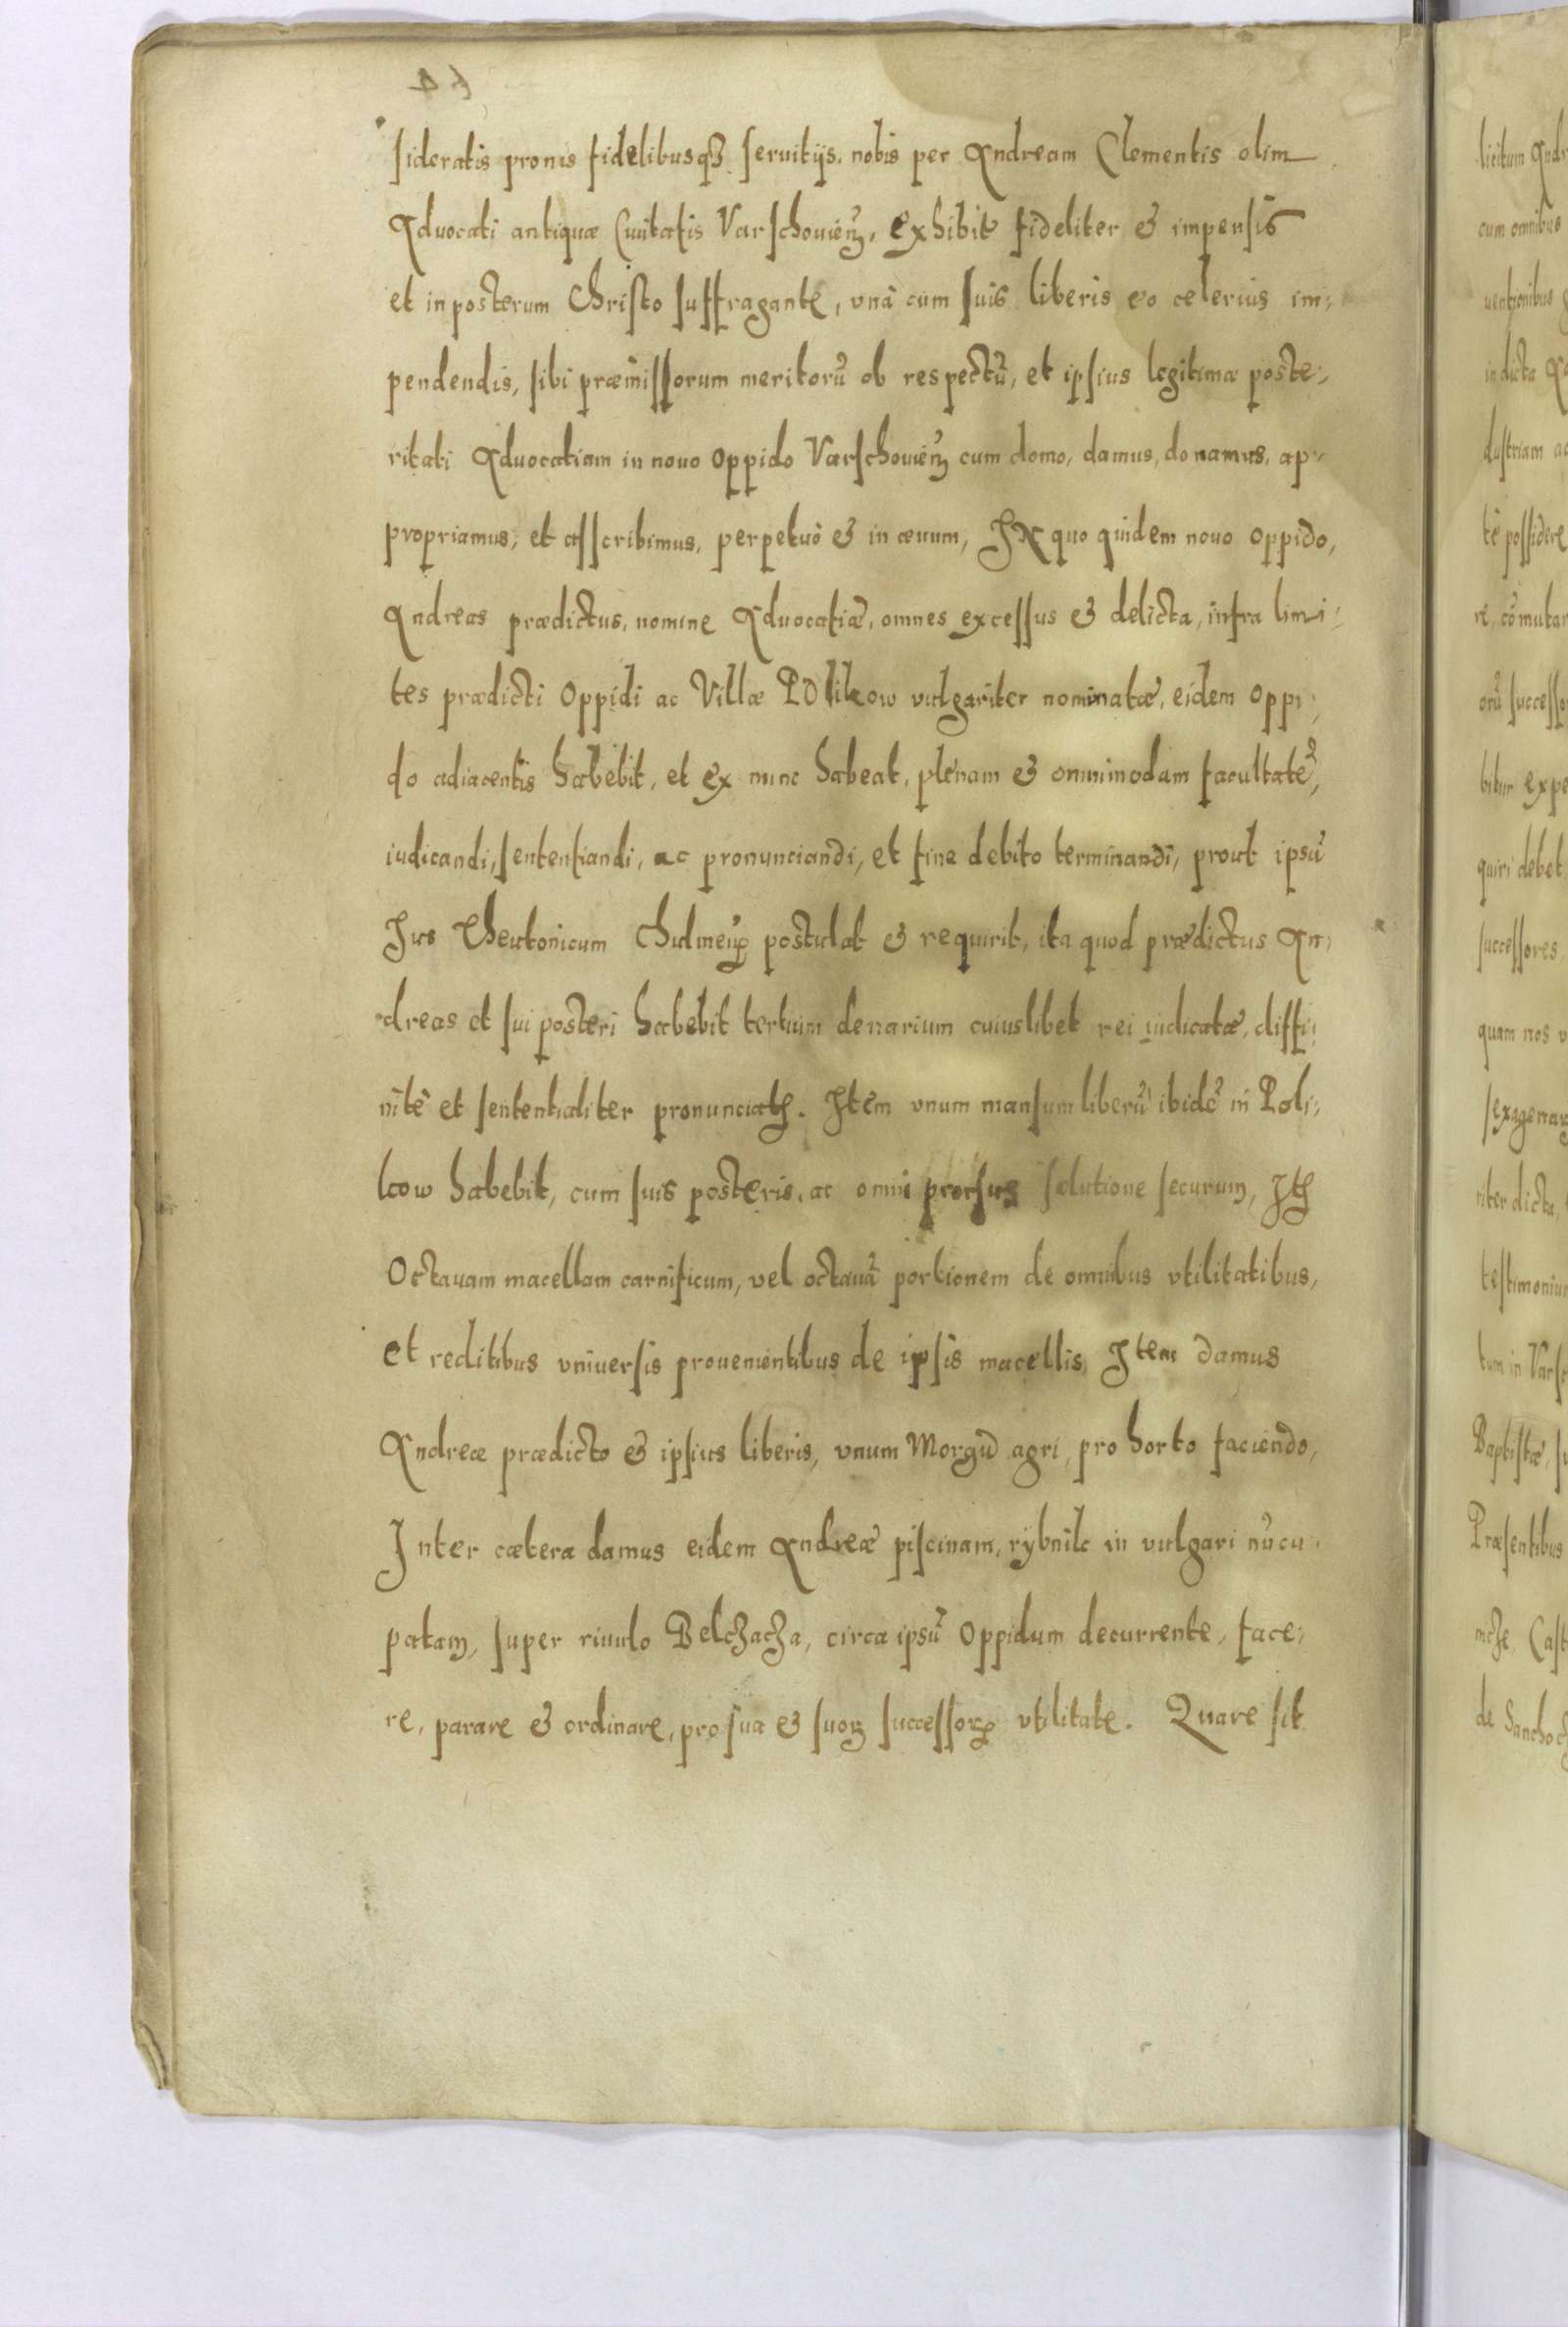 sideratis pronis fidelibusqȝ seruitijs, nobis per Andream Clementis olim
Aduocati antiquæ Ciuitatis Varschouieñ, exhibit fideliter & impensis
et in posterum Christo suffragante, vnà cum suis liberis eo celerius im:
pendendis, sibi præmissorum meritorũ ob respectũ, et ipsius legitimæ poste:
ritati Aduocatiam in nouo Oppido Varschouieñ cum domo, damus, donamus, ap:
propriamus, et asscribimus, perpetuò & in æuum, In quo quidem nouo oppido,
Andreas prædictus, nomine Aduocatiæ, omnes excessus & delicta, infra limi:
tes prædicti Oppidi ac Villæ Polikow vulgariter nominatæ, eidem Oppi:
do adiacentis habebit, et ex nunc habeat, plenam & omnimodam facultatẽ,
iudicandi, sententiandi, ac pronunciandi, et fine debito terminandi, prout ipsũ
Jus Theutonicum Chulmeñ postulat & requirit, ita quod prædictus An:
dreas et sui posteri habebit tertium denarium cuiuslibet rei iudicatæ, diffi:
nitè et sententialiter pronunciatȩ. Item vnum mansum liberũ ibidẽ in Poli:
kow habebit, cum suis posteris, ac omni prorsus solutione securum, Itȩ
Octauam macellam carnificum, vel octauã portionem de omnibus vtilitatibus,
et reditibus vniuersis prouenientibus de ipsis macellis, Item damus
Andreæ prædicto & ipsius liberis, vnum Morgũ agri, pro horto faciendo,
Inter cætera damus eidem Andreæ piscinam, rybnik in vulgari nũcu:
patam, super riuulo Belchacha, circa ipsũ Oppidum decurrente, face:
re, parare & ordinare, pro sua & suoꝝ successoꝝ vtilitate. Quare sit
licitum Andr
cum omnibus
uentionibus
in dicta
dustriam ac
tè possidere
re, cõmutar
orũ successo
bitur expe
quiri debet
successores
quam nos v
sexagenar
riter dicta
testimoniu
tum in Vars
Baptistæ, su
Præsentibus
Cast
de Sanchoc